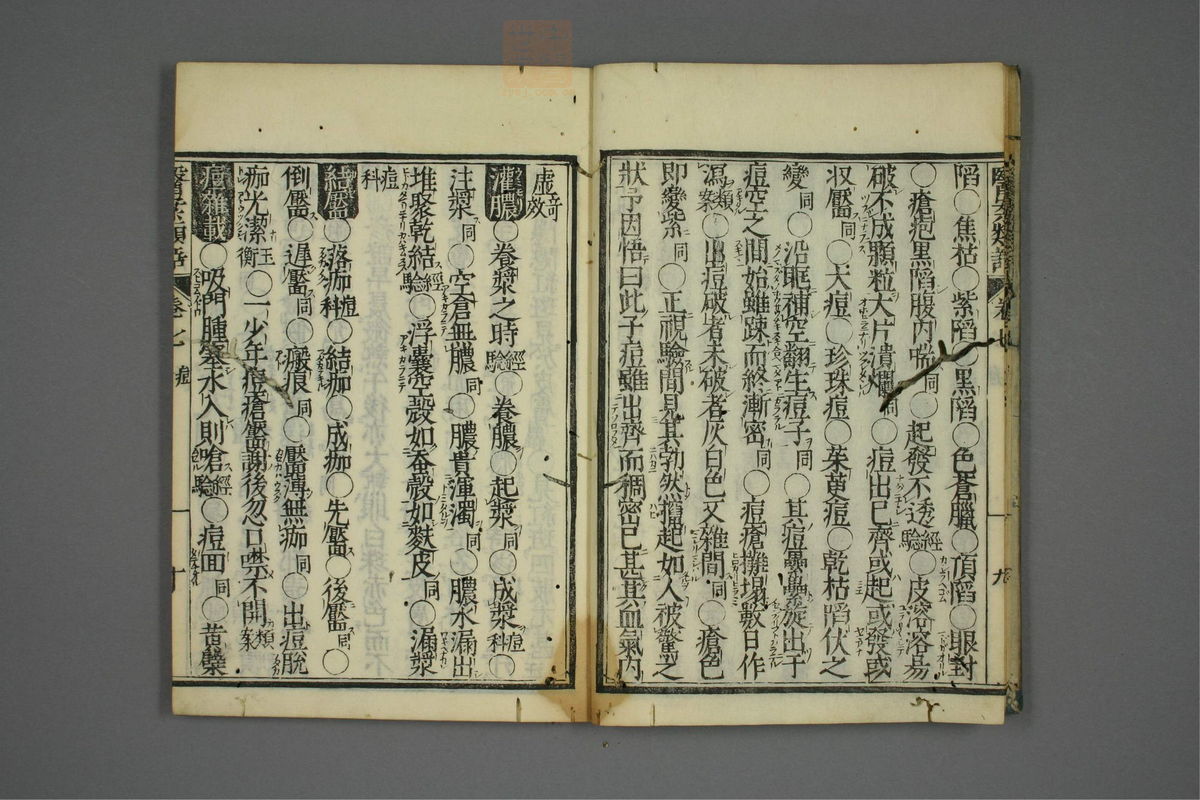 陷○焦枯○紫陷○黑陷○色蒼臘○頂陷○眼對
○瘡疱黑陷腹内喘同○起發不透經驗○皮溶溶易
破不成顆粒大片潰爛同○痘出已齊或起或發或
収靨同○大痘○珍珠痘○茱萸痘○乾枯陷伏之
變同○沿眶補空翻生痘子同○其痘纍纍旋出于
痘空之間始雖踈而終漸密同○痘瘡攤塌數日作
瀉類案○出痘破者未破者灰白色又雜間同○瘡色
即變紫同○正視驗間見其勃然攛起如人被驚之
狀予因悟曰此子痘雖出齊而稠密已甚其血氣内
虛奇效
灌膿○養漿之時經驗○養膿○起漿同○成漿痘科○
注漿同○空倉無膿同○膿貴渾濁同○膿水漏出
堆聚乾結經驗○浮囊空殼如蚕殼如麩皮同○漏漿
痘科
結靨○落痂痘科○結痂○成痂○先靨○後靨同○
倒靨○遲靨同○瘢痕同○靨薄無痂同○出痘脫
痂光潔玉衡○一少年痘瘡靨謝後忽口噤不開類案
痘雜載○吸門腫塞水入則嗆經驗○痘面同○黄蘗